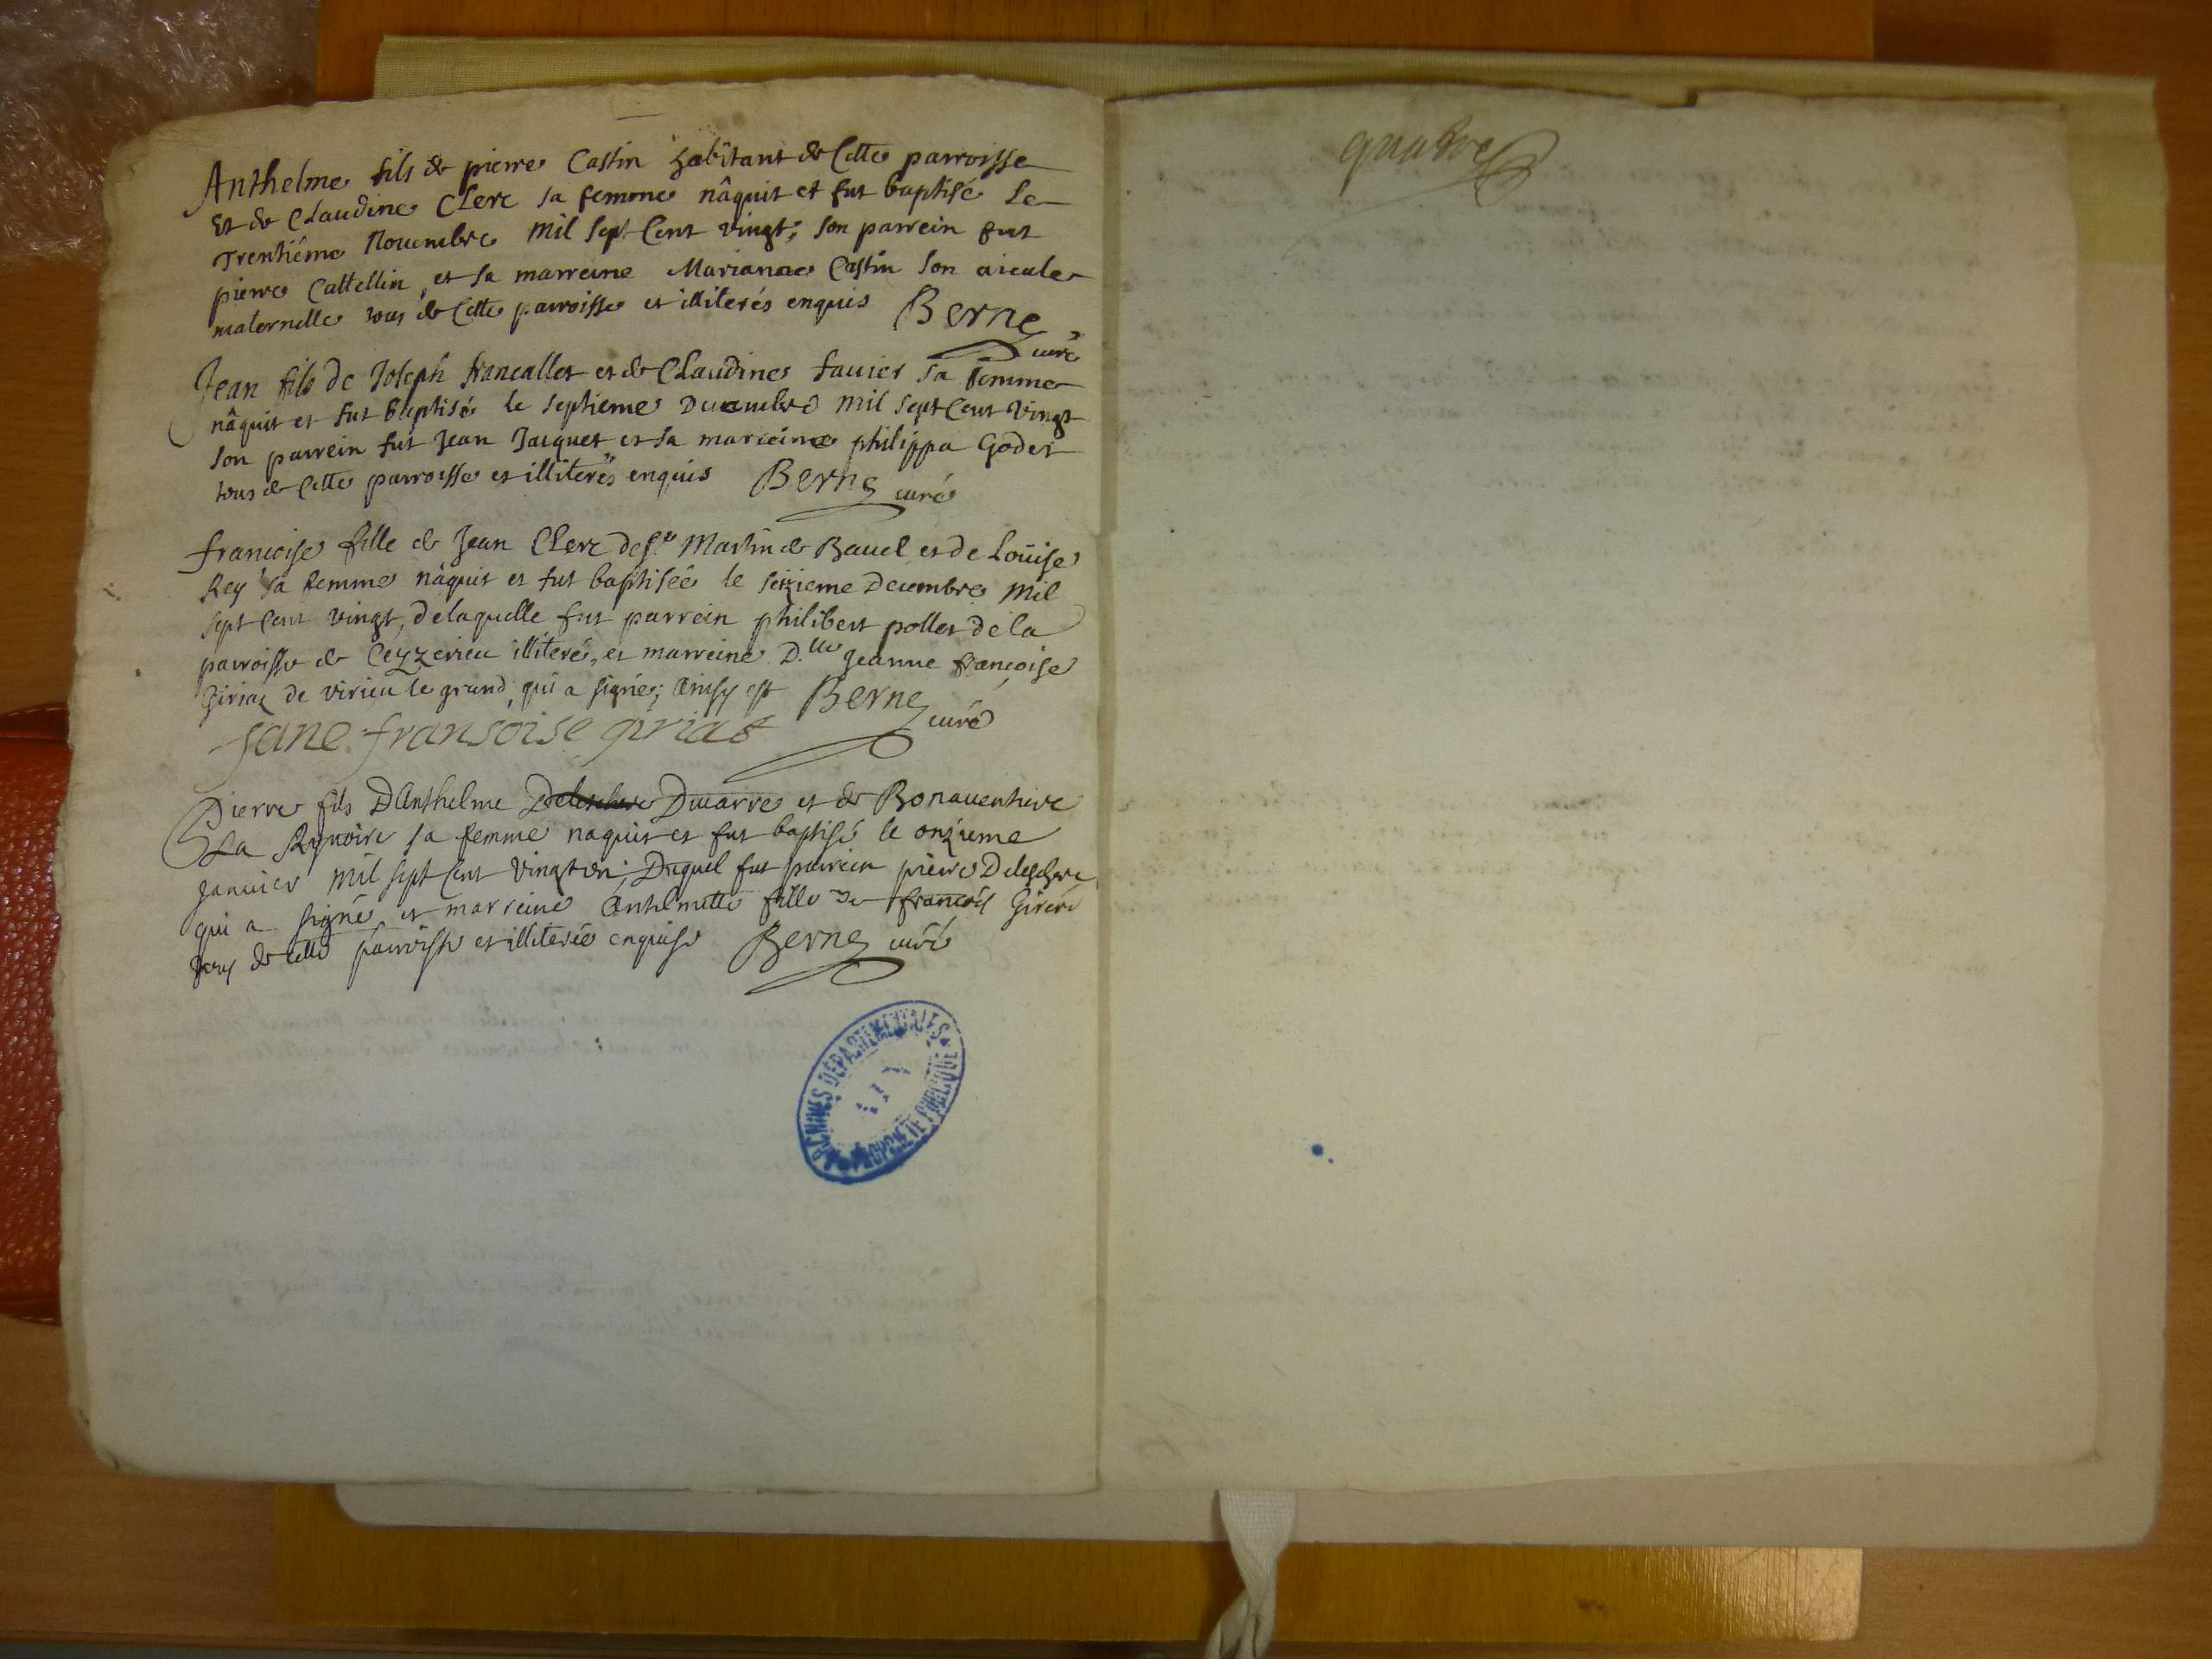 Anthelme fils de pierre Castin habitant de Cette parroisse
Et de Claudine Clerc sa femme nâquit et fut baptisé Le
Trentiéme Novembre Mil sept Cent vingt; son parrein fut
pierre Cattellin, et sa marreine Marianne Castin son aieule
maternelle tous de Cette parroisse et illiterés enquis Berne
curé
Jean fils de Joseph francallet et de Claudine favier sa femme
nâquit et fut baptisé le septieme Decembre mil sept Cent vingt
son parrein fut Jean Jacquet et sa marreine philippa Godet
tous de Cette parroisse et illiterés enquis Berne curé
francoise fille de Jean Clerc de St Martin de Bavel et de Loüise
Rey sa femme nâquit et fut baptisée le seizieme Decembre Mil
sept Cent vingt, de laquelle fut parrein philibert pollet de la
parroisse de Ceyzerieu illiteré, et marreine D.lle Jeanne françoise
Giriaz de virieu le grand, qui a signé; Ainsy est Berne
curé
Jane fransoise giriat
Pierre fils D'Anthelme Ducarre et de Bonaventure
La sa femme naquit et fut baptisé le onzieme
Janvier Mil sept Cent vingt un; Duquel fut parrein pierre Deleschere
qui a signé, et marreine Anthelmette fille de françois Girerd
tous de cette parroisse et illiterée enquise Berne curé
ARCHIVES DÉPARTEMENTALES
PROPRIÉTÉ PUBLIQUE
quatre